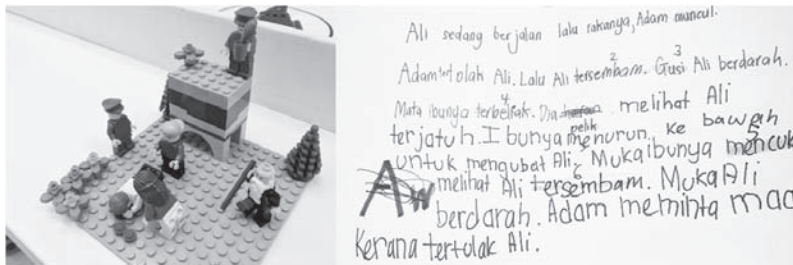 Ali sedang berjalan lalu rakanya, Adam muncul.
Adam tertolak Ali. Lalu Ali tersembam. Gusi Ali berdarah.
2 3
Mata ibunya terbeliak. Dia melihat Ali
4
terjatuh. Ibunya menurun ke bawah
pelik
untuk mengubat Ali. Muka ibunya mencuk
5
Aw melihat Ali tersembam. Muka Ali
6
berdarah. Adam meminta maa
Kerana tertolak Ali.